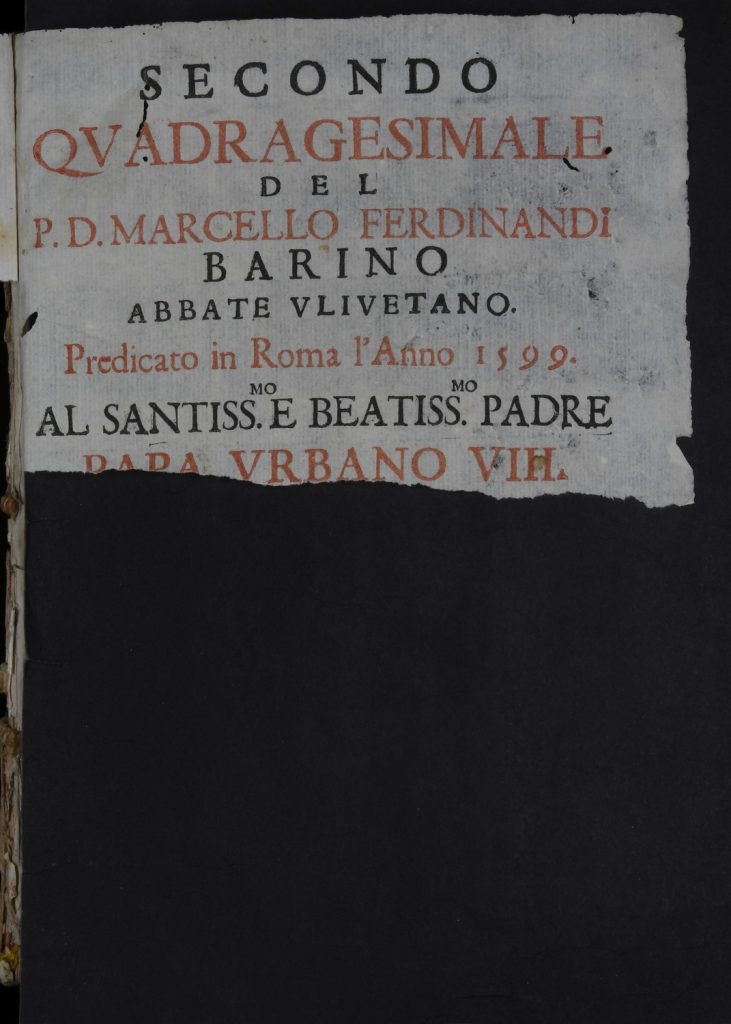 SECONDO
QVADRAGESIMALE
DEL
P. D. MARCELLO FERDINANDI
BARINO
ABBATE VLIVETANO.
Predicato in Roma l'Anno 1599.
AL SANTISS.MO E BEATISS.MO PADRE
PAPA VRBANO VIII.